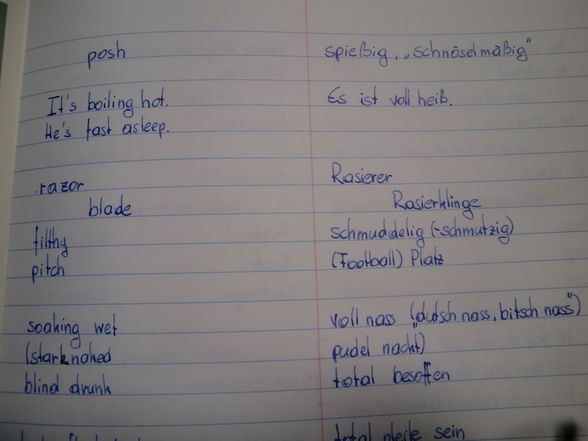 posh spießig, „schnöselmäßig"
It's boiling hot. Es ist voll heiß.
He's fast asleep.
razor Rasierer
blade Rasierklinge
filthy schmuddelig (-schmutzig)
pitch (Football) Platz
soaking wet voll nass (dutsch nass, bitsch nass")
(stark naked pudel nackt)
blind drunk total besoffen
total pleite sein